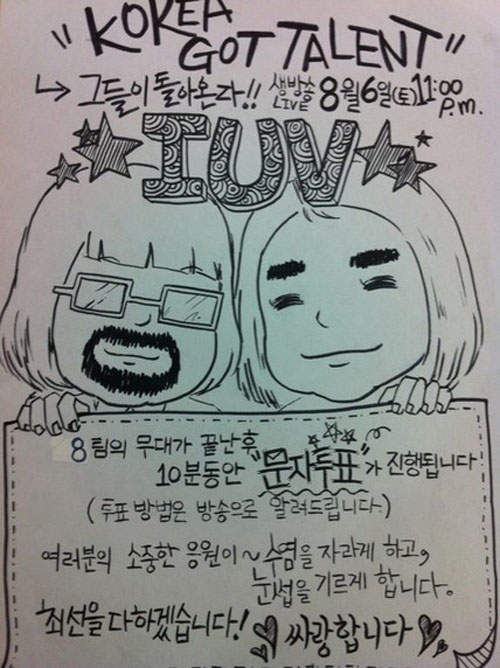 "KOREA
GOT TALENT"
↳ 그들이 돌아온다!! 생방송 LIVE 8월6일(토)11:00 P.M.
IUV
8팀의 무대가 끝난후
10분동안 "문자투표"가 진행됩니다
(투표 방법은 방송으로 알려드립니다)
여러분의 소중한 응원이~ 수염을 자라게 하고,
눈썹을 기르게 합니다.
최선을 다하겠습니다! 싸랑합니다